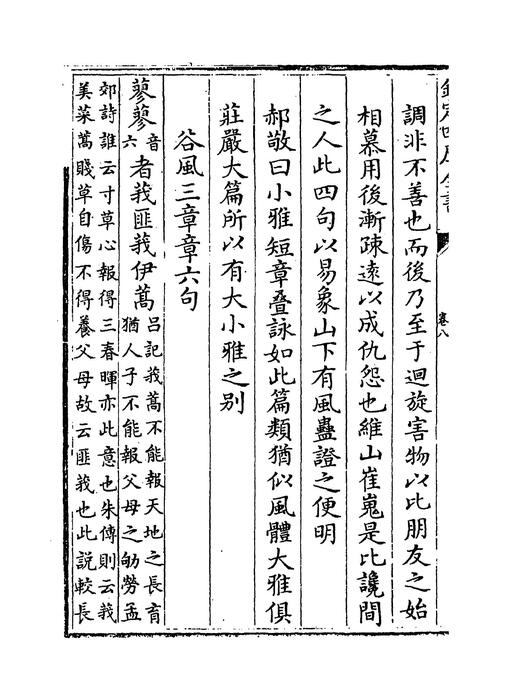 欽定四庫全書
卷八
調非不善也而後乃至于迴旋害物以比朋友之始
相慕用後漸疎遠以成仇怨也維山崔嵬是比讒間
之人此四句以易象山下有風蠱證之便明
郝敬曰小雅短章疊詠如此篇類猶似風體大雅俱
莊嚴大篇所以有大小雅之別
谷風三章章六句
蓼蓼音六者莪匪莪伊蒿呂記莪蒿不能報天地之長育
猶人子不能報父母之劬勞孟
郊詩誰云寸草心報得三春暉亦此意也朱傳則云莪
美菜蒿賤草自傷不得養父母故云匪莪也此説較長